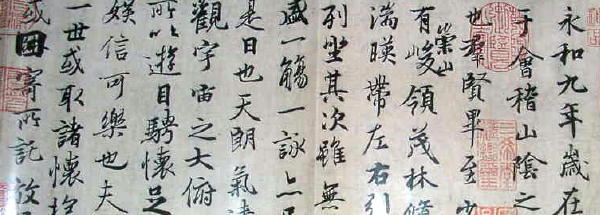 永和九年歲在
于會稽山陰之
也羣賢畢至少
有崇山峻領茂林脩
湍暎帶左右引
列坐其次雖無
盛一觴一詠亦足
是日也天朗氣清
觀宇宙之大俯
所以遊目騁懷足
娛信可樂也夫
一世或取諸懷抱
或因寄所託放